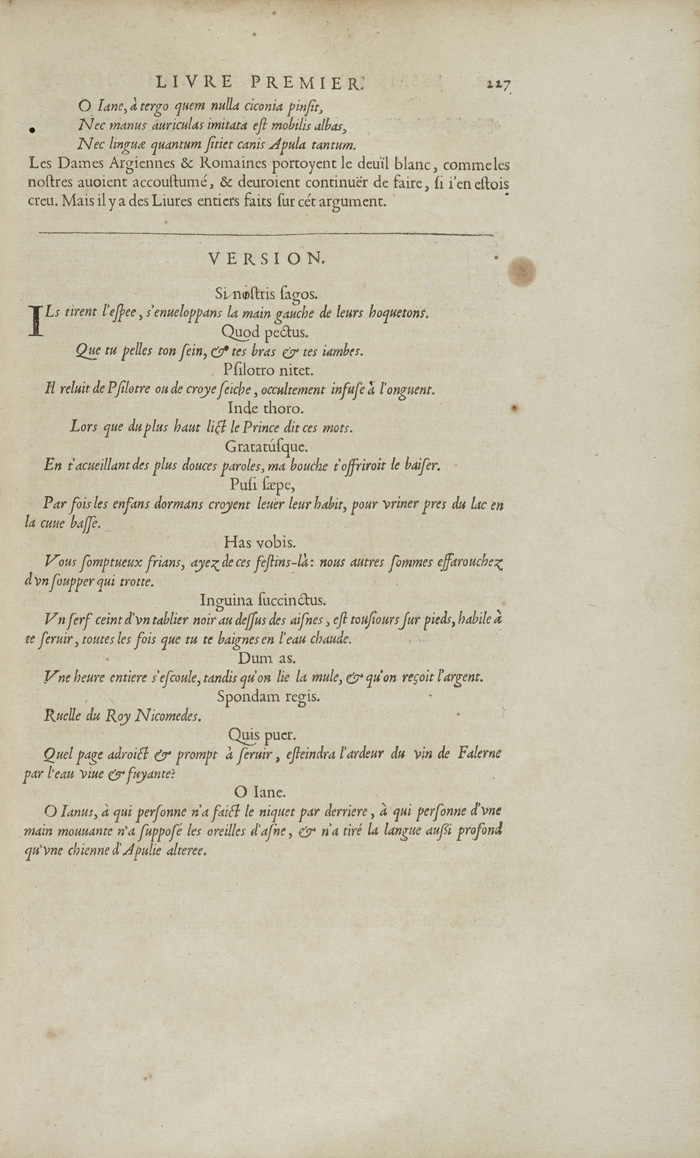 LIVRE PREMIER. 227
O Iane, à tergo quem nulla ciconia pinſit,
Nec manus auriculas imitata eſt mobilis albas,
Nec linguæ quantum ſitiet canis Apula tantum.
Les Dames Argiennes & Romaines portoyent le deuïl blanc, comme les
noſtres auoient accouſtumé, & deuroient continuër de faire, ſi i'en eſtois
creu. Mais il y a des Liures entiers faits ſur cét argument.
VERSION.
Si noſtris ſagos.
ILs tirent l'eſpee, s'enueloppans la main gauche de leurs hoquetons.
Quod pectus.
Que tu pelles ton ſein, & tes bras & tes iambes.
Pſilotro nitet.
Il reluit de Pſilotre ou de croye ſeiche, occultement infuſe à l'onguent.
Inde thoro.
Lors que du plus haut lict le Prince dit ces mots.
Gratatúſque.
En t'acueillant des plus douces paroles, ma bouche t'offriroit le baiſer.
Puſi ſæpe,
Par fois les enfans dormans croyent leuer leur habit, pour vriner pres du lac en
la cuue baſſe.
Has vobis.
Vous ſomptueux frians, ayez de ces feſtins-là: nous autres ſommes effarouchez
d'vn ſoupper qui trotte.
Inguina ſuccinctus.
Vn ſerf ceint d'vn tablier noir au deſſus des aiſnes, eſt touſiours ſur pieds, habile à
te ſeruir, toutes les fois que tu te baignes en l'eau chaude.
Dum as.
Vne heure entiere s'eſcoule, tandis qu'on lie la mule, & qu'on reçoit l'argent.
Spondam regis.
Ruelle du Roy Nicomedes.
Quis puer.
Quel page adroict & prompt à ſeruir, eſteindra l'ardeur du vin de Falerne
par l'eau viue & fuyante?
O Iane.
O Ianus, à qui perſonne n'a faict le niquet par derriere, à qui perſonne d'vne
main mouuante n'a ſuppoſé les oreilles d'aſne, & n'a tiré la langue auſſi profond
qu'vne chienne d'Apulie alteree.